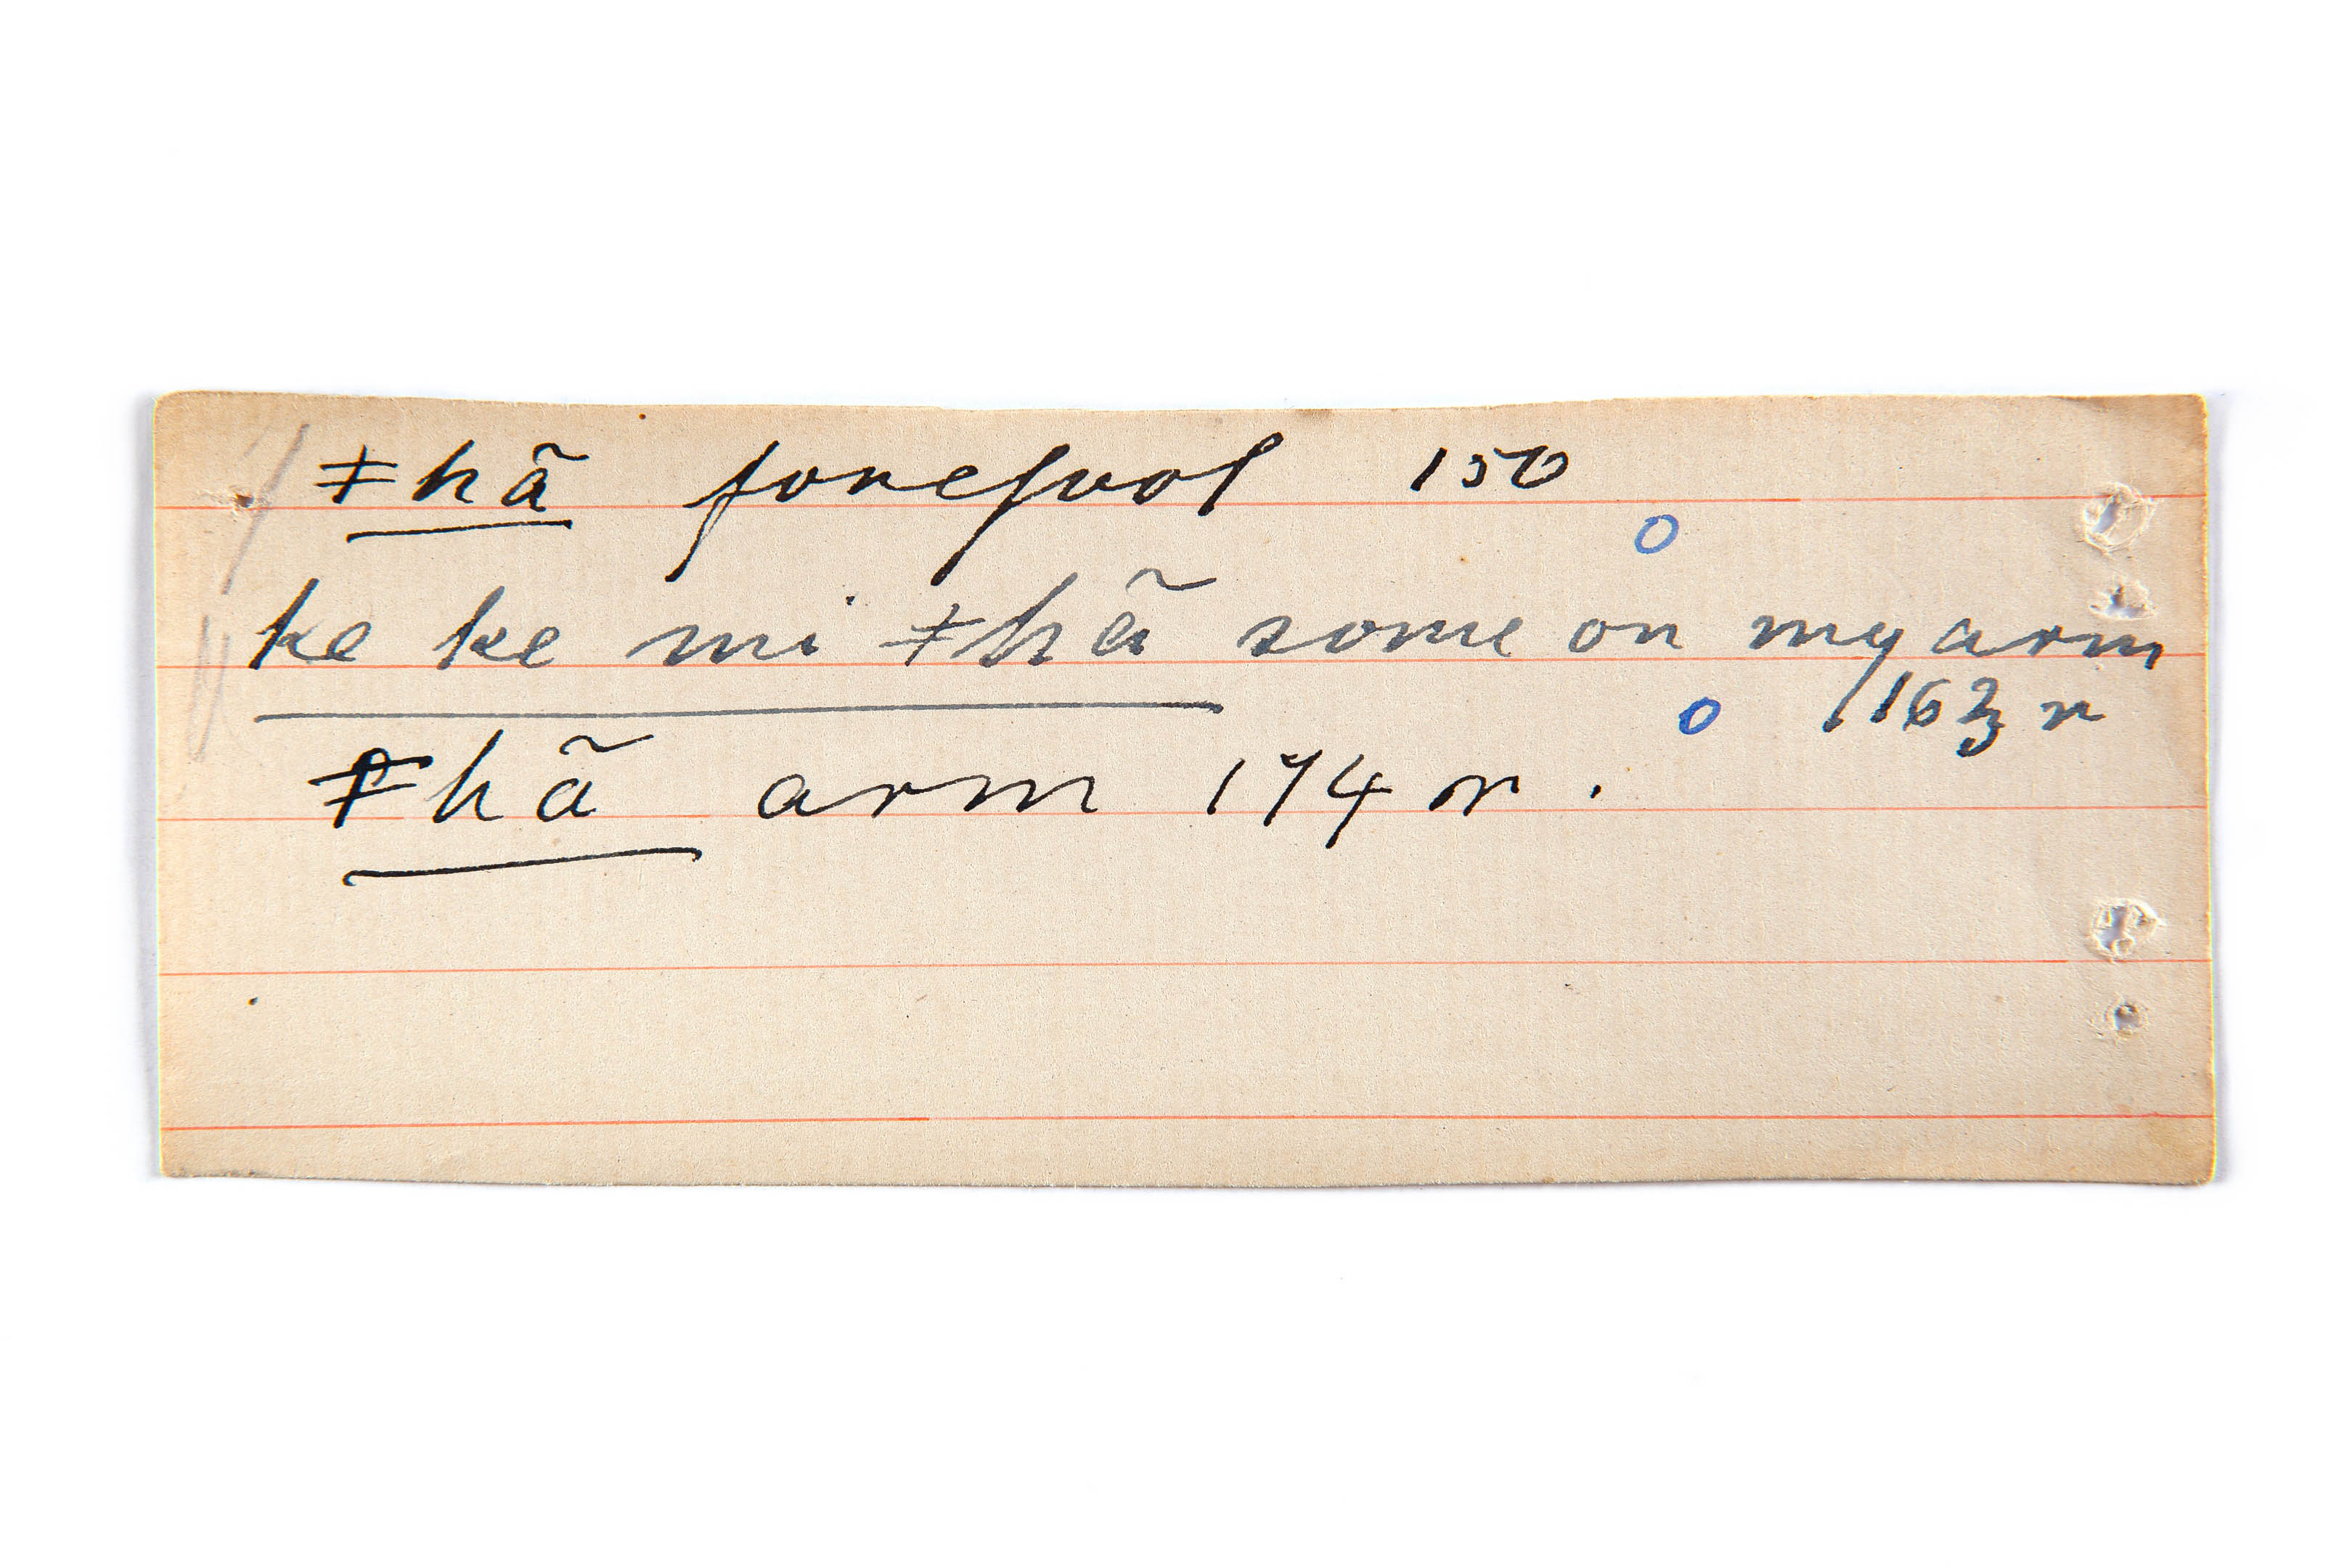 ǂhã forefoot 150
ke ke mi ǂhã some on my arm
163 r
ǂhã arm 174 r.